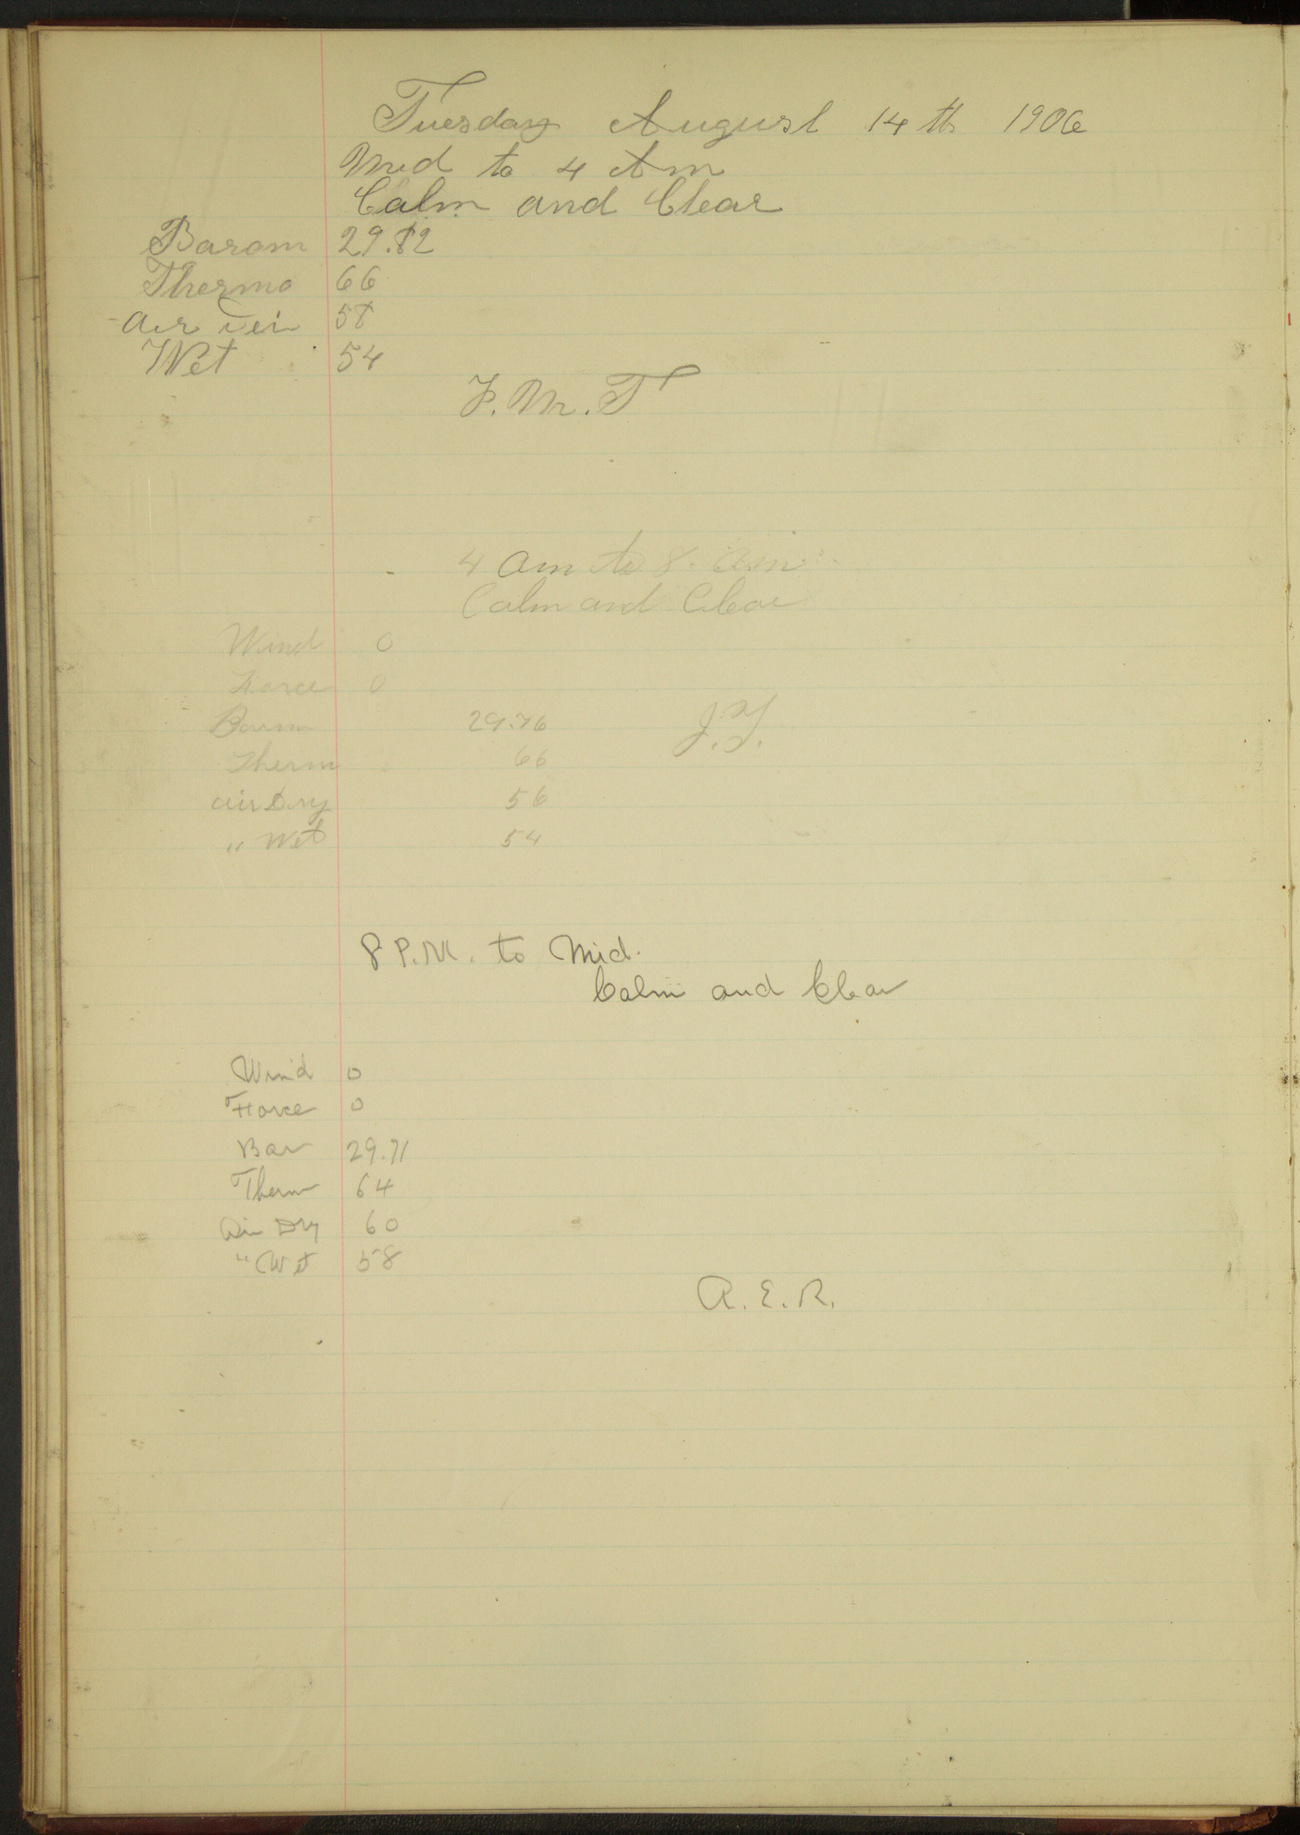 Tuesday August 14th 1906
Mid to 4 Am
Calm and Clear
Barom 29.82
Thermo 66
Air 58
Wet 54
F. M. T
4 am to 8. am
Calm and Clear
Wind 0
Force 0
Barom 29.76 J. Y.
Therm 66
air Dry 56
" Wet 54
8 P.M. to Mid.
Calm and Clear
Wind 0
Force 0
Bar 29.71
Therm 64
Air Dry 60
" Wet 58
A. E. R.